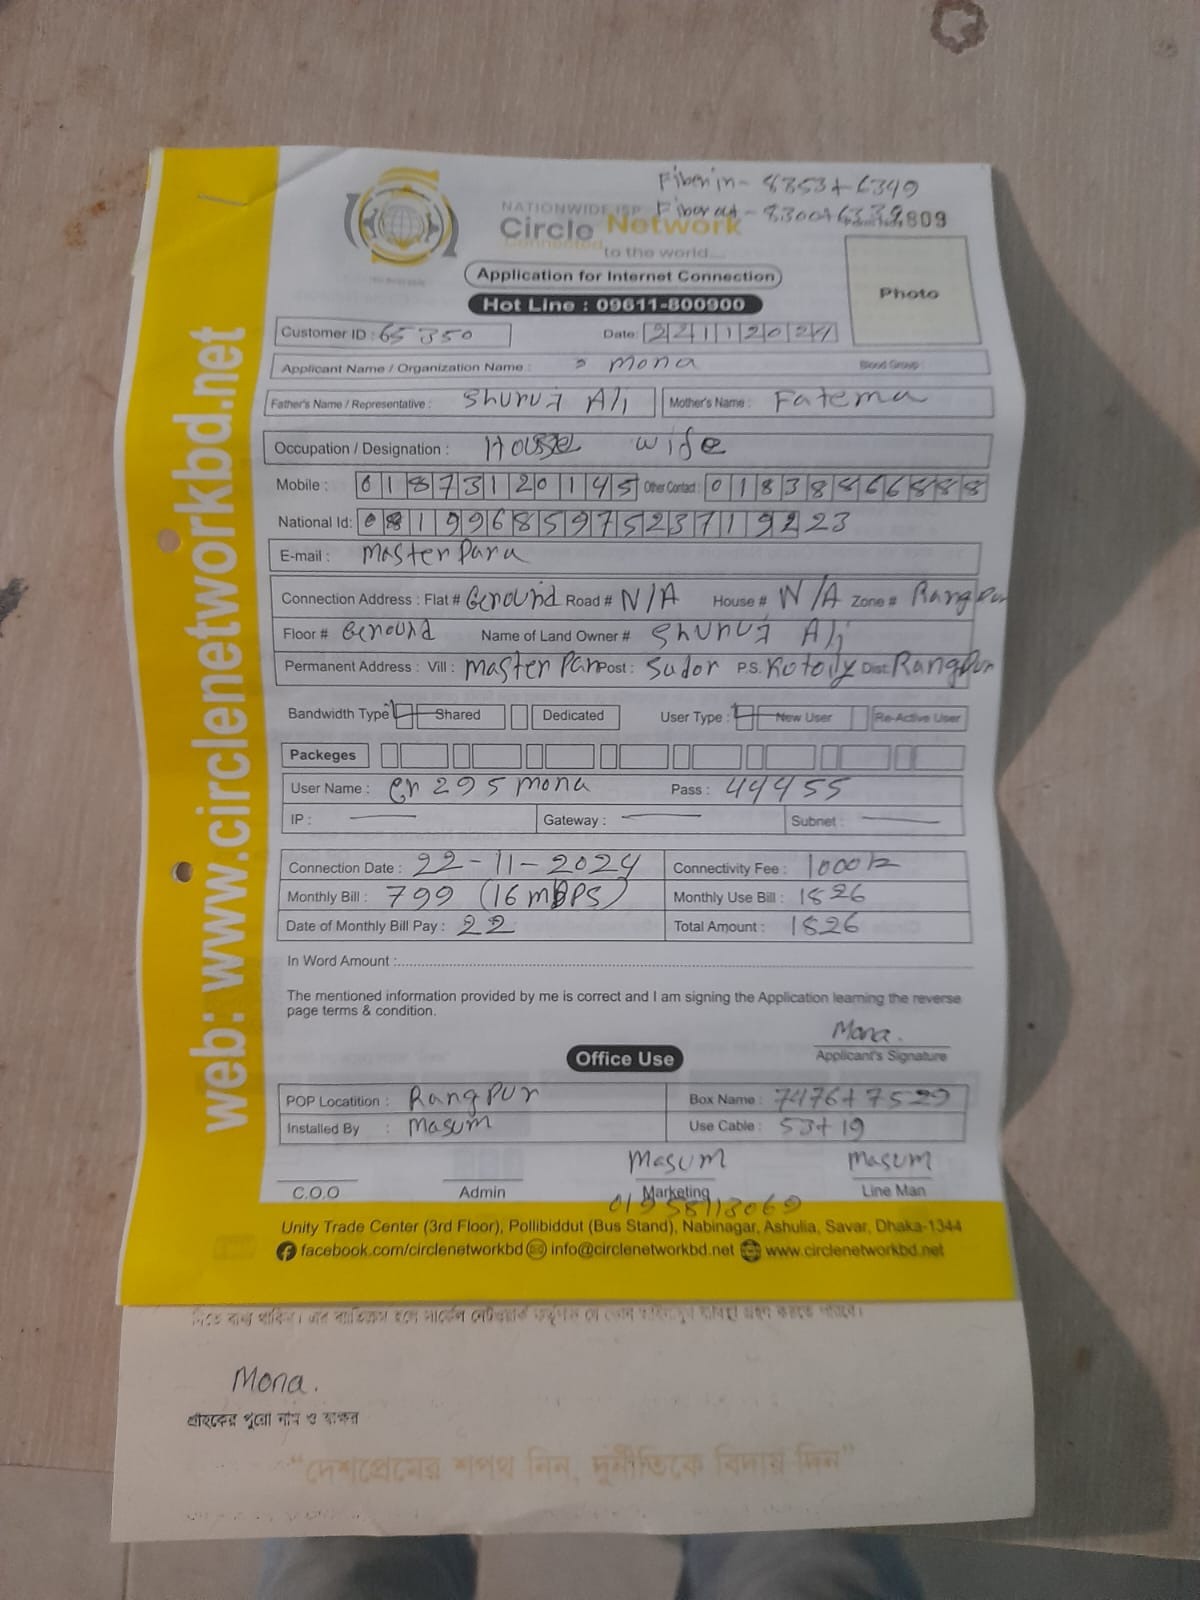 Fiber in - 8353+6349
NATIONWIDE ISP Fiber out - 8300+6339 809
Circle Network
Connected to the world....
Application for Internet Connection
Photo
Hot Line : 09611-800900
Customer ID : 65350 Date: 22112024
Applicant Name / Organization Name : Mona Blood Group :
Father's Name / Representative : Shuruj Ali Mother's Name : Fatema
Occupation / Designation : House wife
Mobile : 01873120145 Other Contact :
National Id:
E-mail : master Para
Connection Address : Flat # Ground Road # N/A House # N/A Zone # Rangpur
Floor # Ground Name of Land Owner # Shuruj Ali
Permanent Address : Vill : master Para Post : Sudor P.S. Kotoily Dist: Rangpur
Bandwidth Type Shared Dedicated User Type : New User Re-Active User
Packeges
User Name : cr295mona Pass : 44455
IP : Gateway : Subnet :
Connection Date : 22-11-2024 Connectivity Fee : 1000 tk
Monthly Bill : 799 (16 mBPS) Monthly Use Bill : 1826
Date of Monthly Bill Pay : 22 Total Amount : 1826
In Word Amount :
The mentioned information provided by me is correct and I am signing the Application learning the reverse
page terms & condition.
Mona.
Applicant's Signature
Office Use
POP Locatition : Rangpur Box Name : 7476+7529
Installed By : Masum Use Cable : 53+19
Masum Masum
C.O.O Admin Marketing Line Man
Unity Trade Center (3rd Floor), Pollibiddut (Bus Stand), Nabinagar, Ashulia, Savar, Dhaka-1344
facebook.com/circlenetworkbd info@circlenetworkbd.net www.circlenetworkbd.net
web: www.circlenetworkbd.net
Mona.
গ্রাহকের পুরো নাম ও স্বাক্ষর
“দেশপ্রেমের শপথ নিন, দুর্নীতিকে বিদায় দিন”